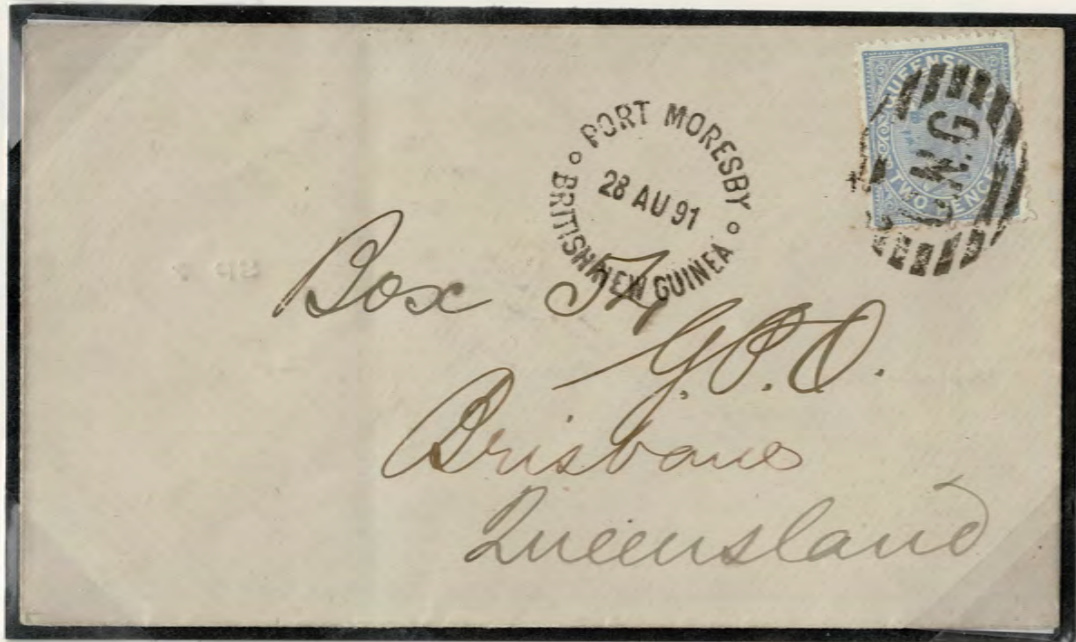 PORT MORESBY
28 AU 91
BRITISH NEW GUINEA
QUEENSLAND
TWO PENCE
N.G
Box 54
G.P.O.
Brisbane
Queensland